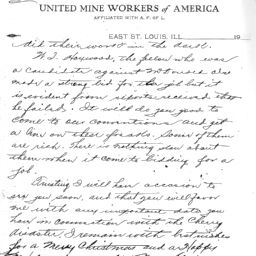 UNITED MINE WORKERS of AMERICA
AFFILIATED WITH A. F. OF L.
EAST ST. LOUIS, ILL. 19
did their work in the dark.
W. D. Haywood, the fellow who was
a candidate against McDonald also
made a strong bid for the job but it
is evident from reports received that
he failed. It will do you good to
come to our convention and get
a line on these freaks. Some of them
are rich. There is nothing slow about
them when it come to bidding for a
job.
Trusting I will have occasion to
see you soon, and that you will favor
me with any important data you
have in connection with the Cherry
disaster, I remain with best wishes
for a Merry Christmas and a Happy